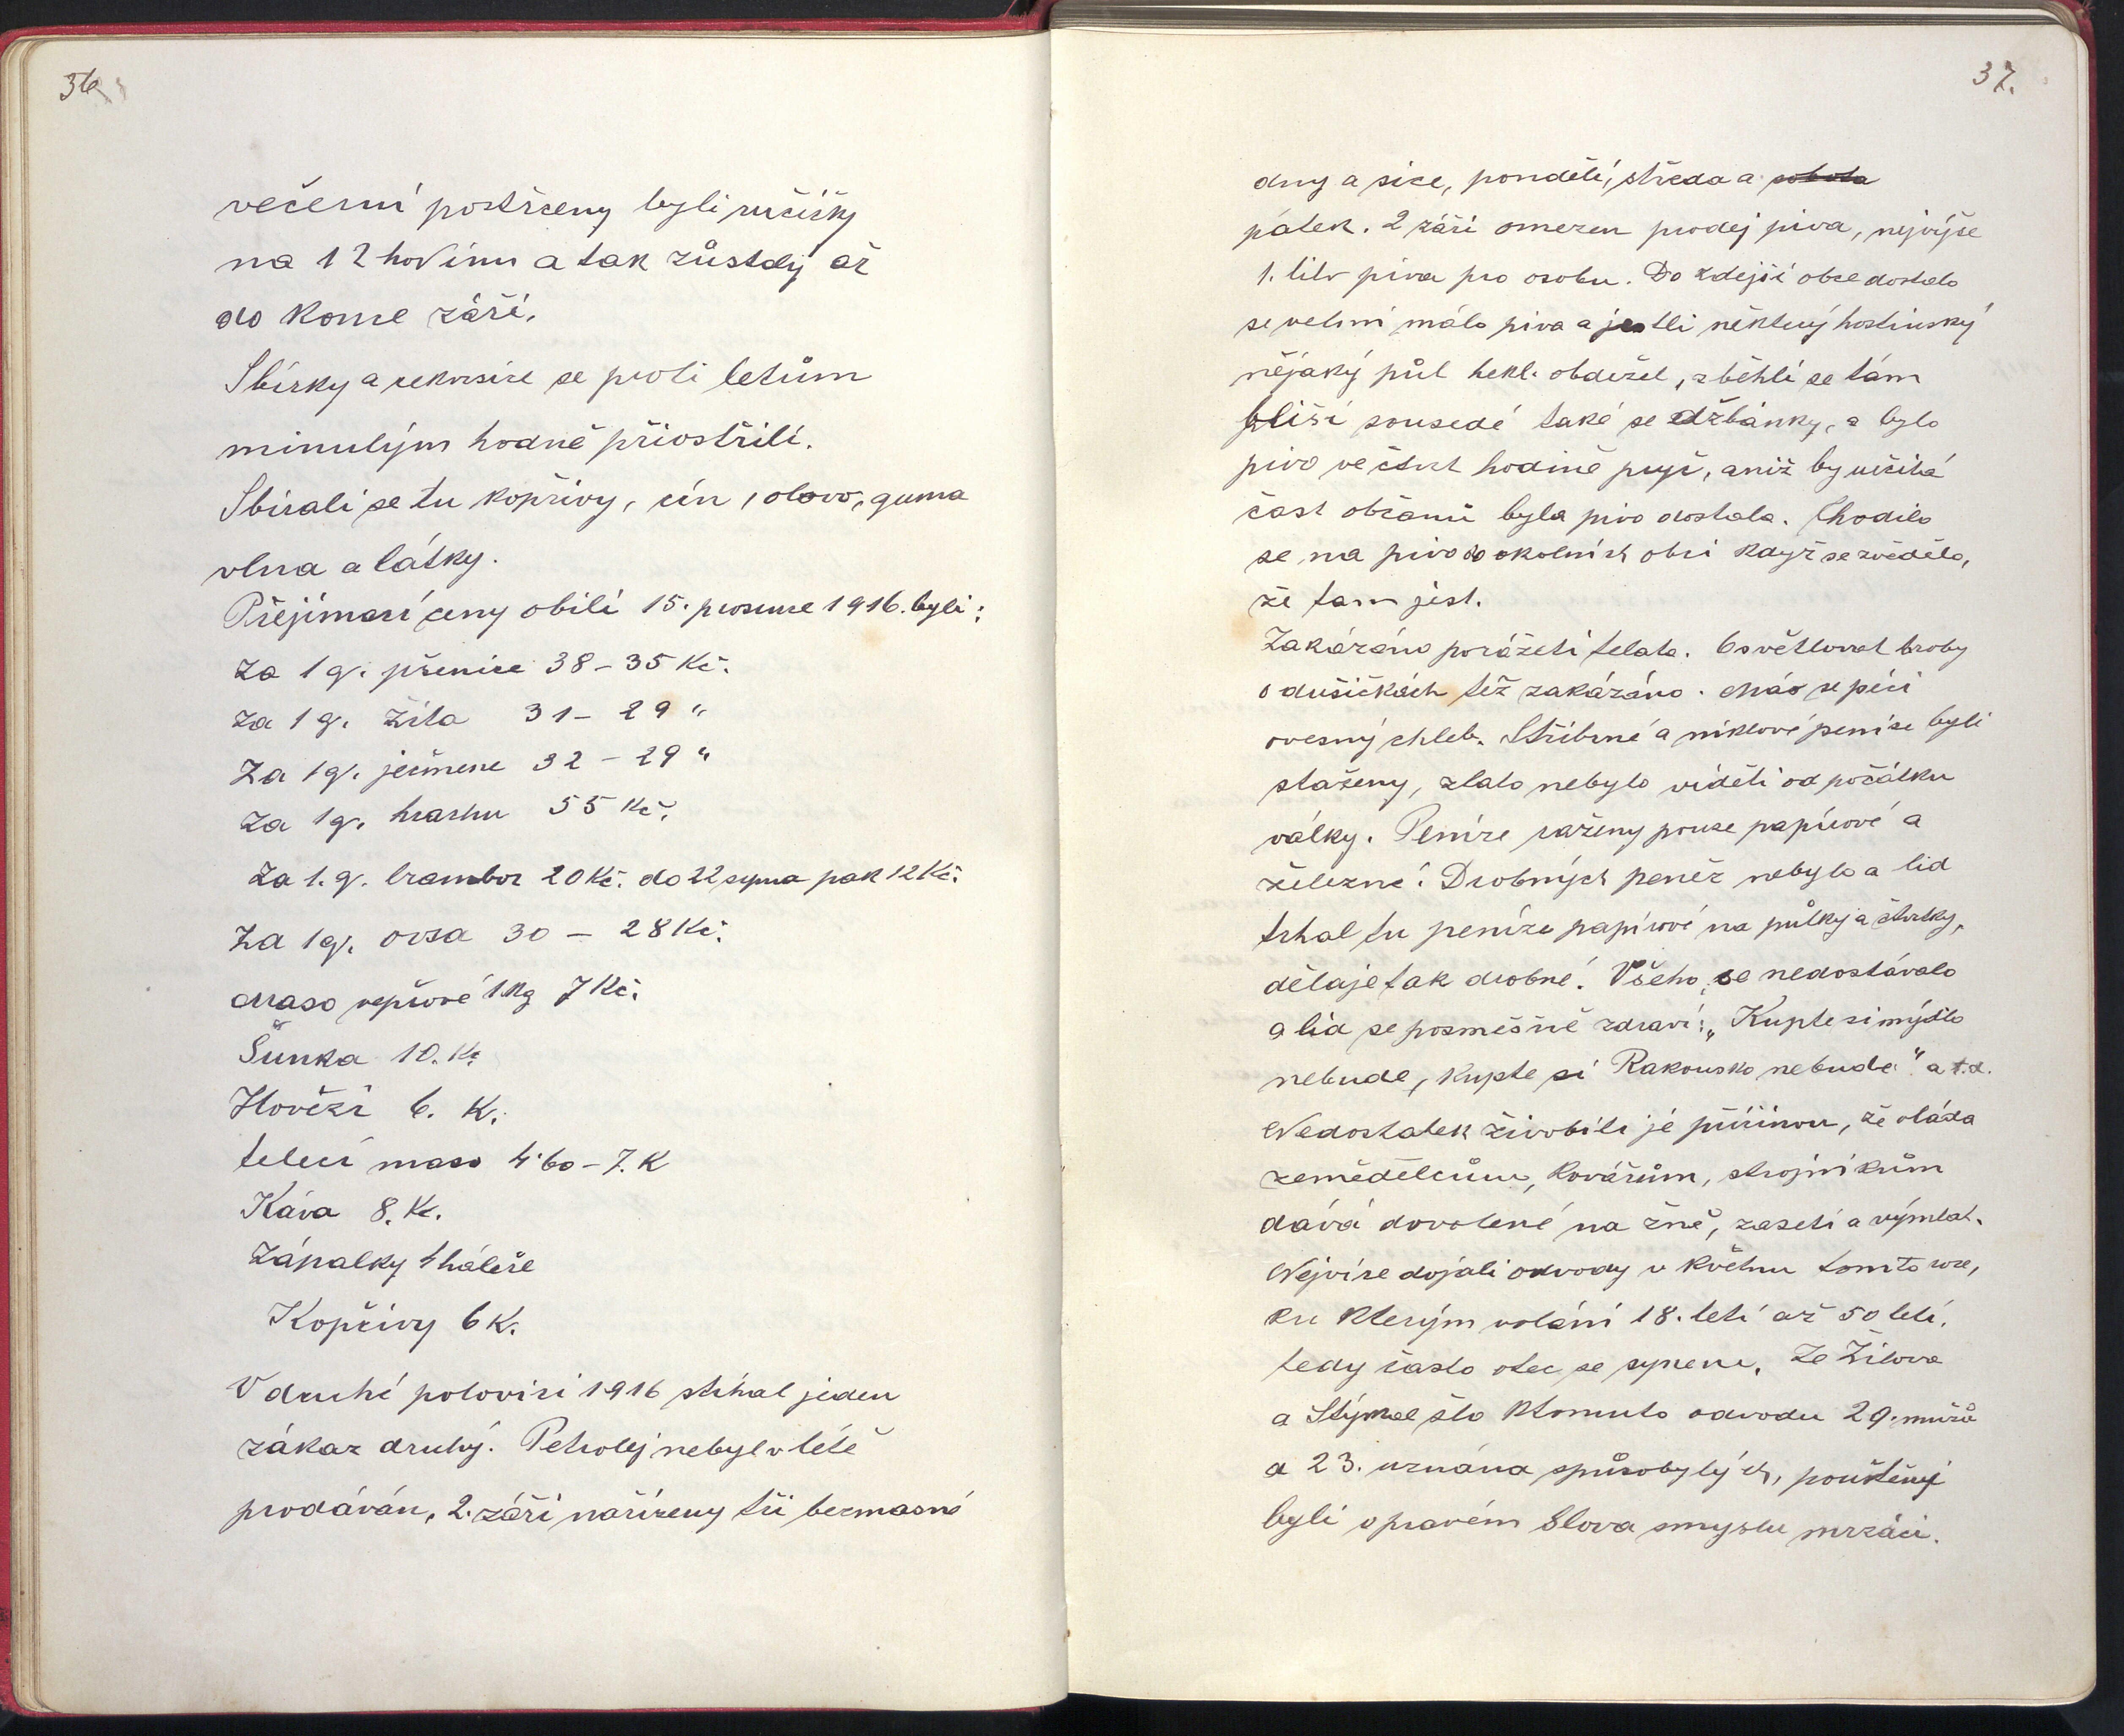 36
večerní postrčeny byli ručičky
na 12 hodinu a tak zůstaly až
do konce září.
Sbírky a rekvisice se proti letům
minulým hodně přiostřili.
Sbírali se tu kopřivy, cín, olovo, guma
vlna a látky.
Přejímací ceny obilí 15. prosince 1916. byli:
Za 1 q. pšenice 38 – 35 Kč.
Za 1 q. žita 31 – 29 "
Za 1 q. ječmene 32 – 29 "
Za 1 q. hrachu 55 Kč.
Za 1. q. brambor 20 Kč. do 22 srpna pak 12 Kč.
Za 1 q. ovsa 30 – 28 Kč.
Maso vepřové 1 kg 7 Kč.
Šunka 10. Kč
Hovězí 6. K.
telecí maso 4·60 – 7. K
Káva 8. K.
Zápalky 4 haléře
Kopřivy 6 K.
V druhé polovici 1916 stíhal jeden
zákaz druhý. Petrolej nebyl v létě
prodáván, 2. září nařízeny tři bezmasné
37.
dny a sice, pondělí, středa a sobota
pátek. 2 září omezen prodej piva, nejvýše
1. litr piva pro osobu. Do zdejší obce dostalo
se velmi málo piva a jestli některý hostinský
nějaký půl hekl. obdržel, sběhli se tam
bližší sousedé také se džbánky, a bylo
pivo ve čtvrt hodině pryč, aniž by určitá
část občanů byla pivo dostala. Chodilo
se na pivo do okolních obcí když se zvědělo,
že tam jest.
Zakázáno porážeti telata. Osvětlovat hroby
o dušičkách též zakázáno. Má se péci
ovesný chleb. Stříbrné a niklové peníze byli
staženy, zlato nebylo viděti od počátku
války. Peníze raženy pouze papírové a
železné. Drobných peněz nebylo a lid
trhal tu peníze papírové na půlky a čtvrtky,
dělaje tak drobné. Všeho se nedostávalo
a lid se posměšně zdraví: „Kupte si mýdlo
nebude, kupte si Rakousko nebude" a t.d.
Nedostatek živobití je příčinou, že vláda
zemědělcům, kovářům, strojníkům
dává dovolené na žně, zasetí a výmlat.
Nejvíce dojali odvody v květnu tomto roce,
ku kterým voláni 18. letí až 50 letí,
tedy často otec se synem. Ze Žilova
a Stýskal šlo ktomuto odvodu 29. mužů
a 23. uznána způsobylých, pouštěny
byli v pravém slova smyslu mrzáci.